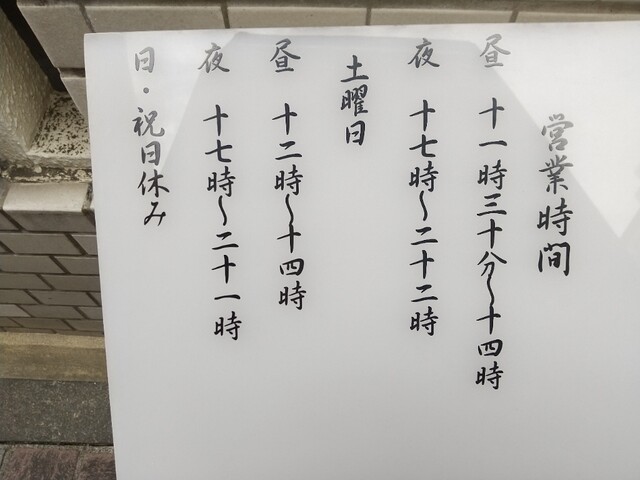 営業時間
昼 十一時三十分～十四時
夜 十七時～二十二時
土曜日
昼 十二時～十四時
夜 十七時～二十一時
日・祝日休み